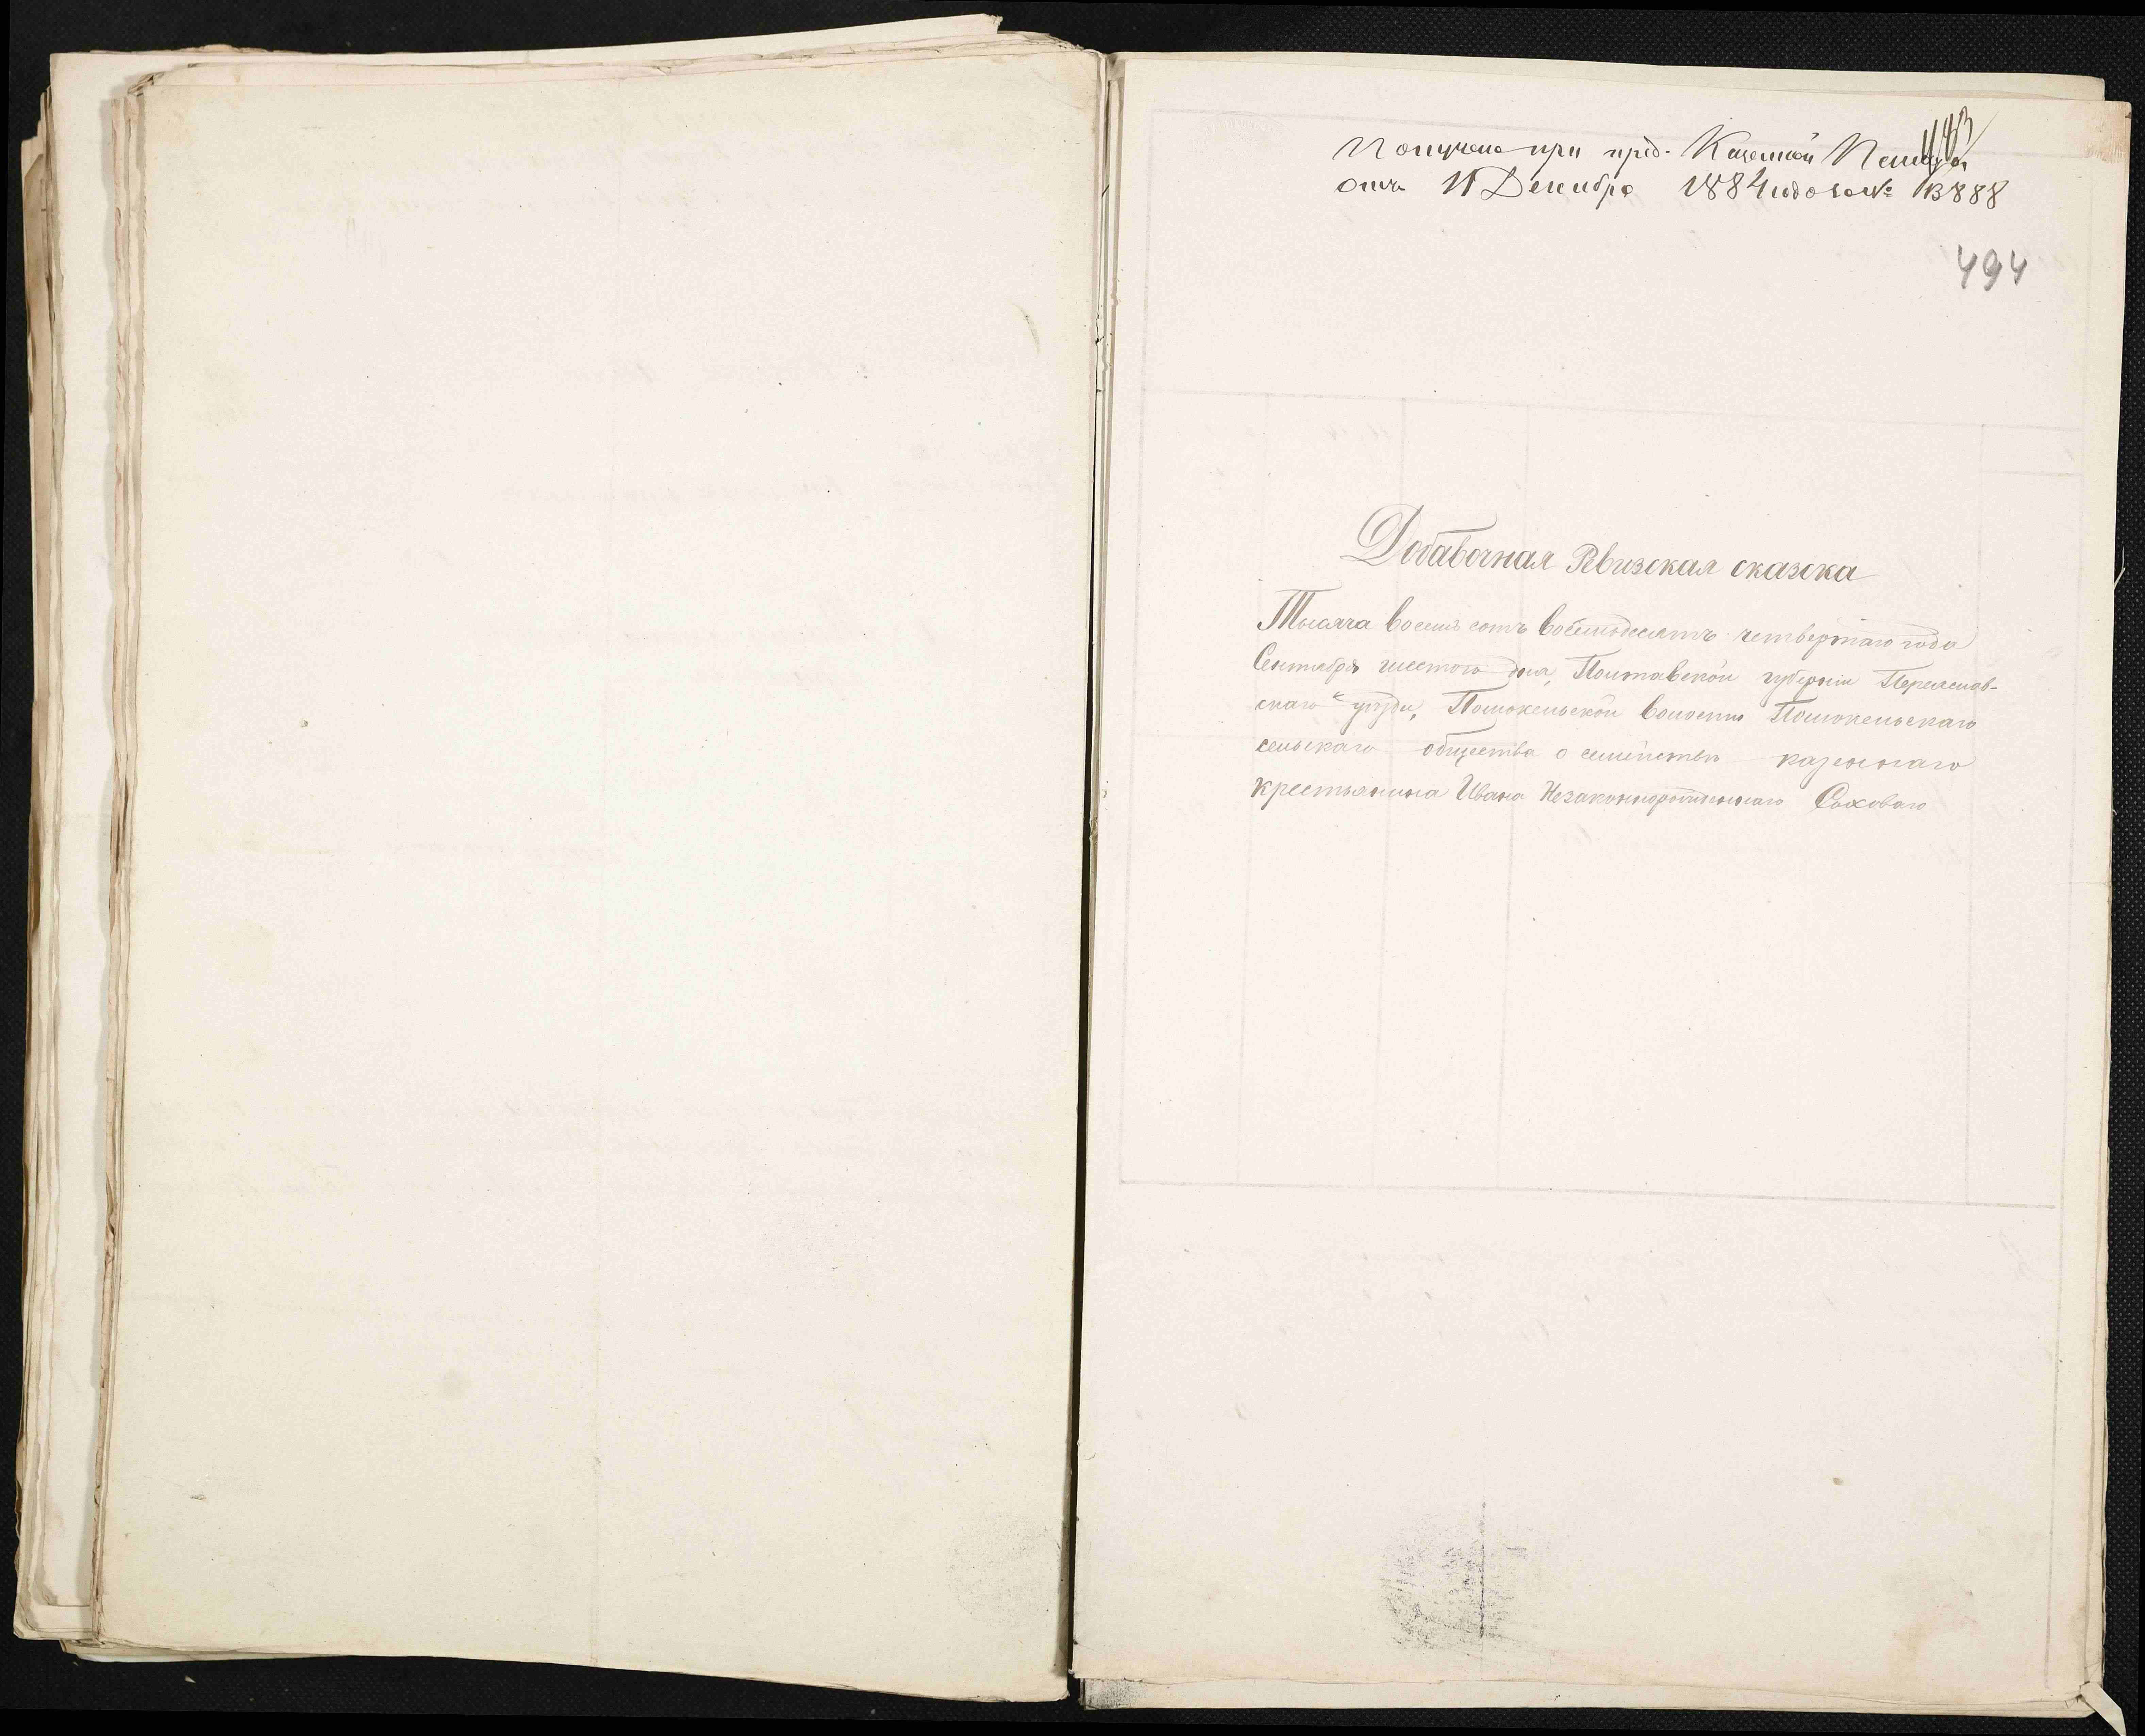 Получено при пред. Казенной Палаты
отъ 11 Декабря 1884 года за № 13888
494
Добавочная Ревизская сказка
Тысяча восемь сотъ восемьдесятъ четвертаго года
Сентября шестого дня, Полтавской губернии Переяслав-
скаго уезда, Помокельской волости Помокельскаго
сельскаго общества о семействе казеннаго
крестьянина Ивана Незаконнорожденнаго Соковаго